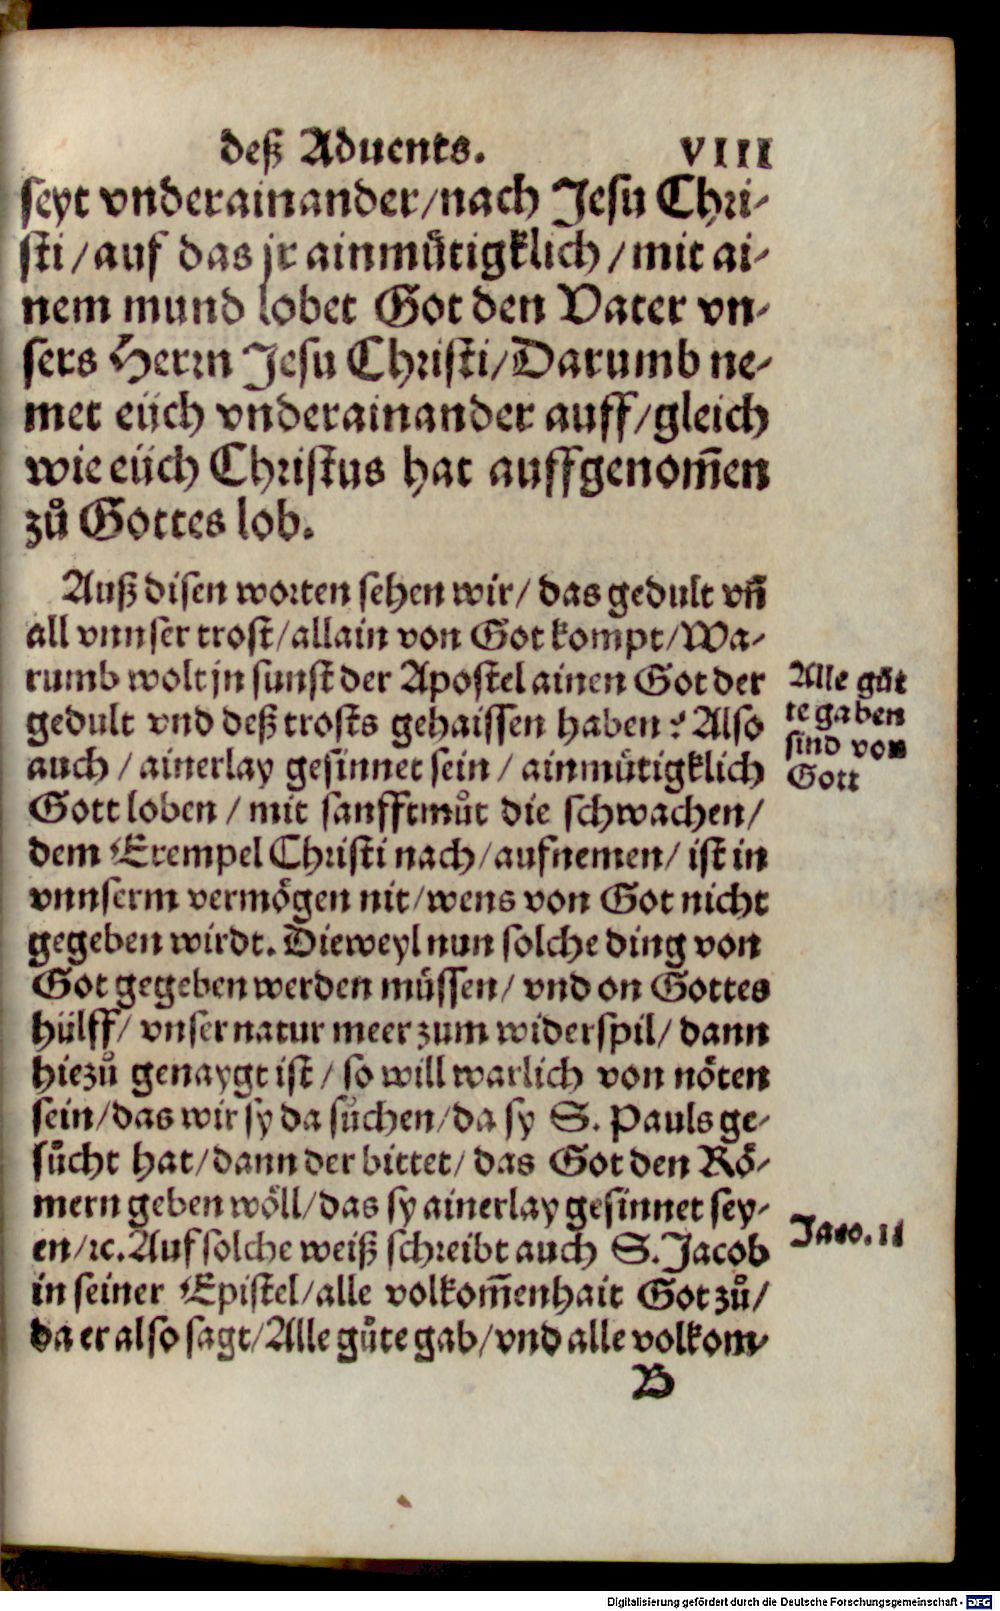 deß Aduents. VIII
seyt vnderainander/nach Jesu Chri-
sti/auf das jr ainmuͤtigklich/mit ai-
nem mund lobet Got den Vater vn-
sers Herrn Jesu Christi/Darumb ne-
met eüch vnderainander auff/gleich
wie eüch Christus hat auffgenom̃en
zuͦ Gottes lob.
Auß disen worten sehen wir/das gedult vñ
all vnnser trost/allain von Got kompt/Wa-
rumb wolt jn sunst der Apostel ainen Got der
gedult vnd deß trosts gehaissen haben? Also
auch/ainerlay gesinnet sein/ainmuͤtigklich
Gott loben/mit sanfftmuͦt die schwachen/
dem Exempel Christi nach/aufnemen/ist in
vnnserm vermoͤgen nit/wens von Got nicht
gegeben wirdt. Dieweyl nun solche ding von
Got gegeben werden muͤssen/vnd on Gottes
hülff/vnser natur meer zum widerspil/dann
hiezuͦ genaygt ist/so will warlich von noͤten
sein/das wir sy da suͦchen/da sy S. Pauls ge-
suͦcht hat/dann der bittet/das Got den Roͤ-
mern geben woͤll/das sy ainerlay gesinnet sey-
en/ꝛc. Auf solche weiß schreibt auch S. Jacob
in seiner Epistel/alle volkom̃enhait Got zuͦ/
da er also sagt/Alle guͦte gab/vnd alle volkom-
B
Alle guͦt
te gaben
sind von
Gott
Jaco. 1
Digitalisierung gefördert durch die Deutsche Forschungsgemeinschaft - DFG